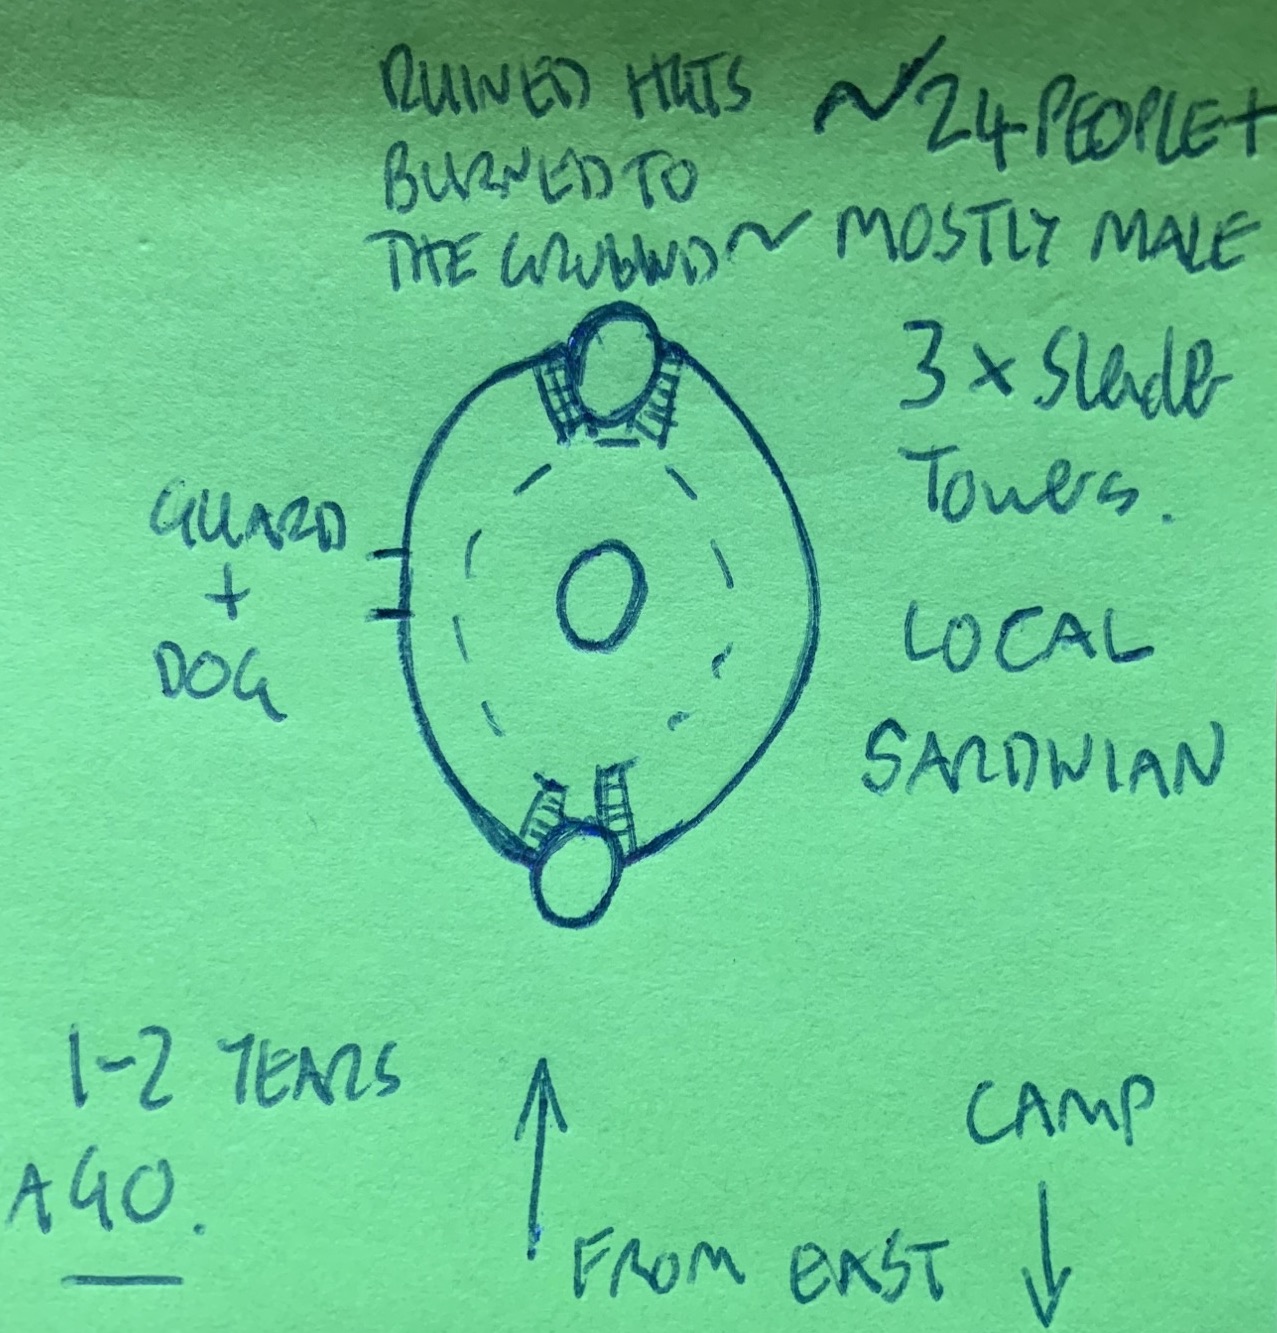 RUINED HUTS
BURNED TO
THE GROUND
~ 24 PEOPLE+
~ MOSTLY MALE
3 x Slender
Towers.
GUARD
+
DOG
LOCAL
SARDINIAN
1-2 YEARS
AGO.
FROM EAST
CAMP